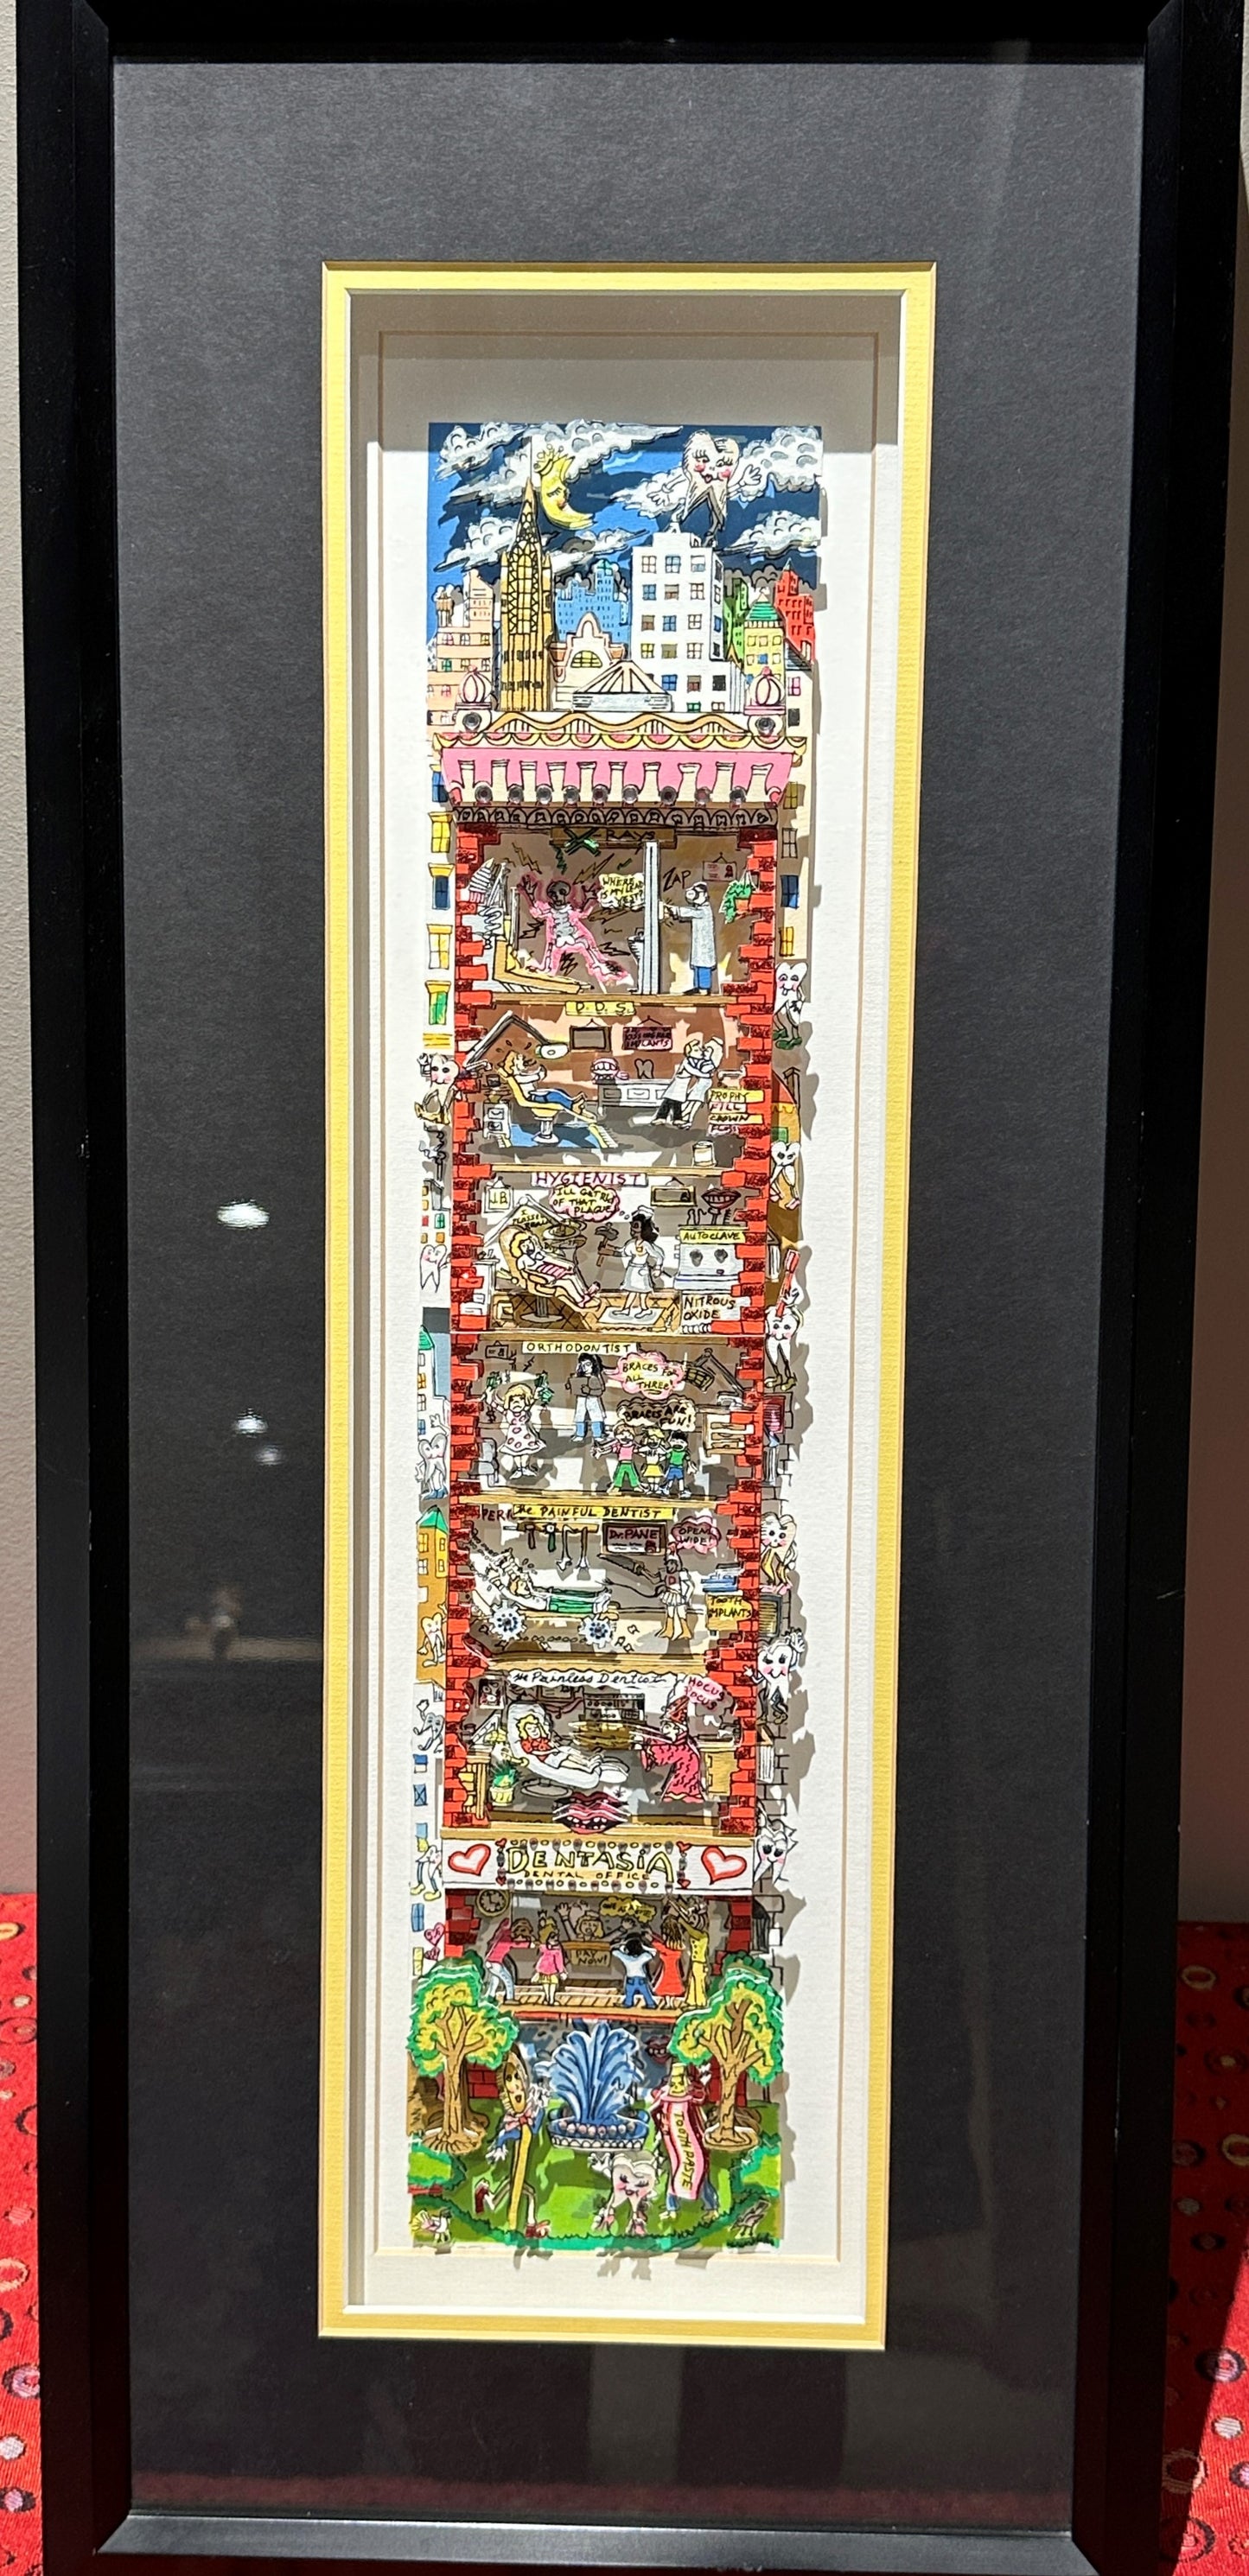 X RAYS
WHERE
IS MY LEAD
VEST?
ZAP
D.D.S.
IMPLANTS
PROPHY
FILL
CROWN
HYGIENIST
J.B.
I'LL GET RID
OF THAT
PLAQUE
AUTOCLAVE
NITROUS
OXIDE
ORTHODONTIST
BRACES FOR
ALL THREE!
BRACES ARE
FUN!
The PAINFUL DENTIST
Dr. PANE
OPEN
WIDE!
TOOTH
IMPLANTS
The Painless Dentist
HOCUS
POCUS
DENTASIA
DENTAL OFFICE
PAY
NOW!
TOOTHPASTE